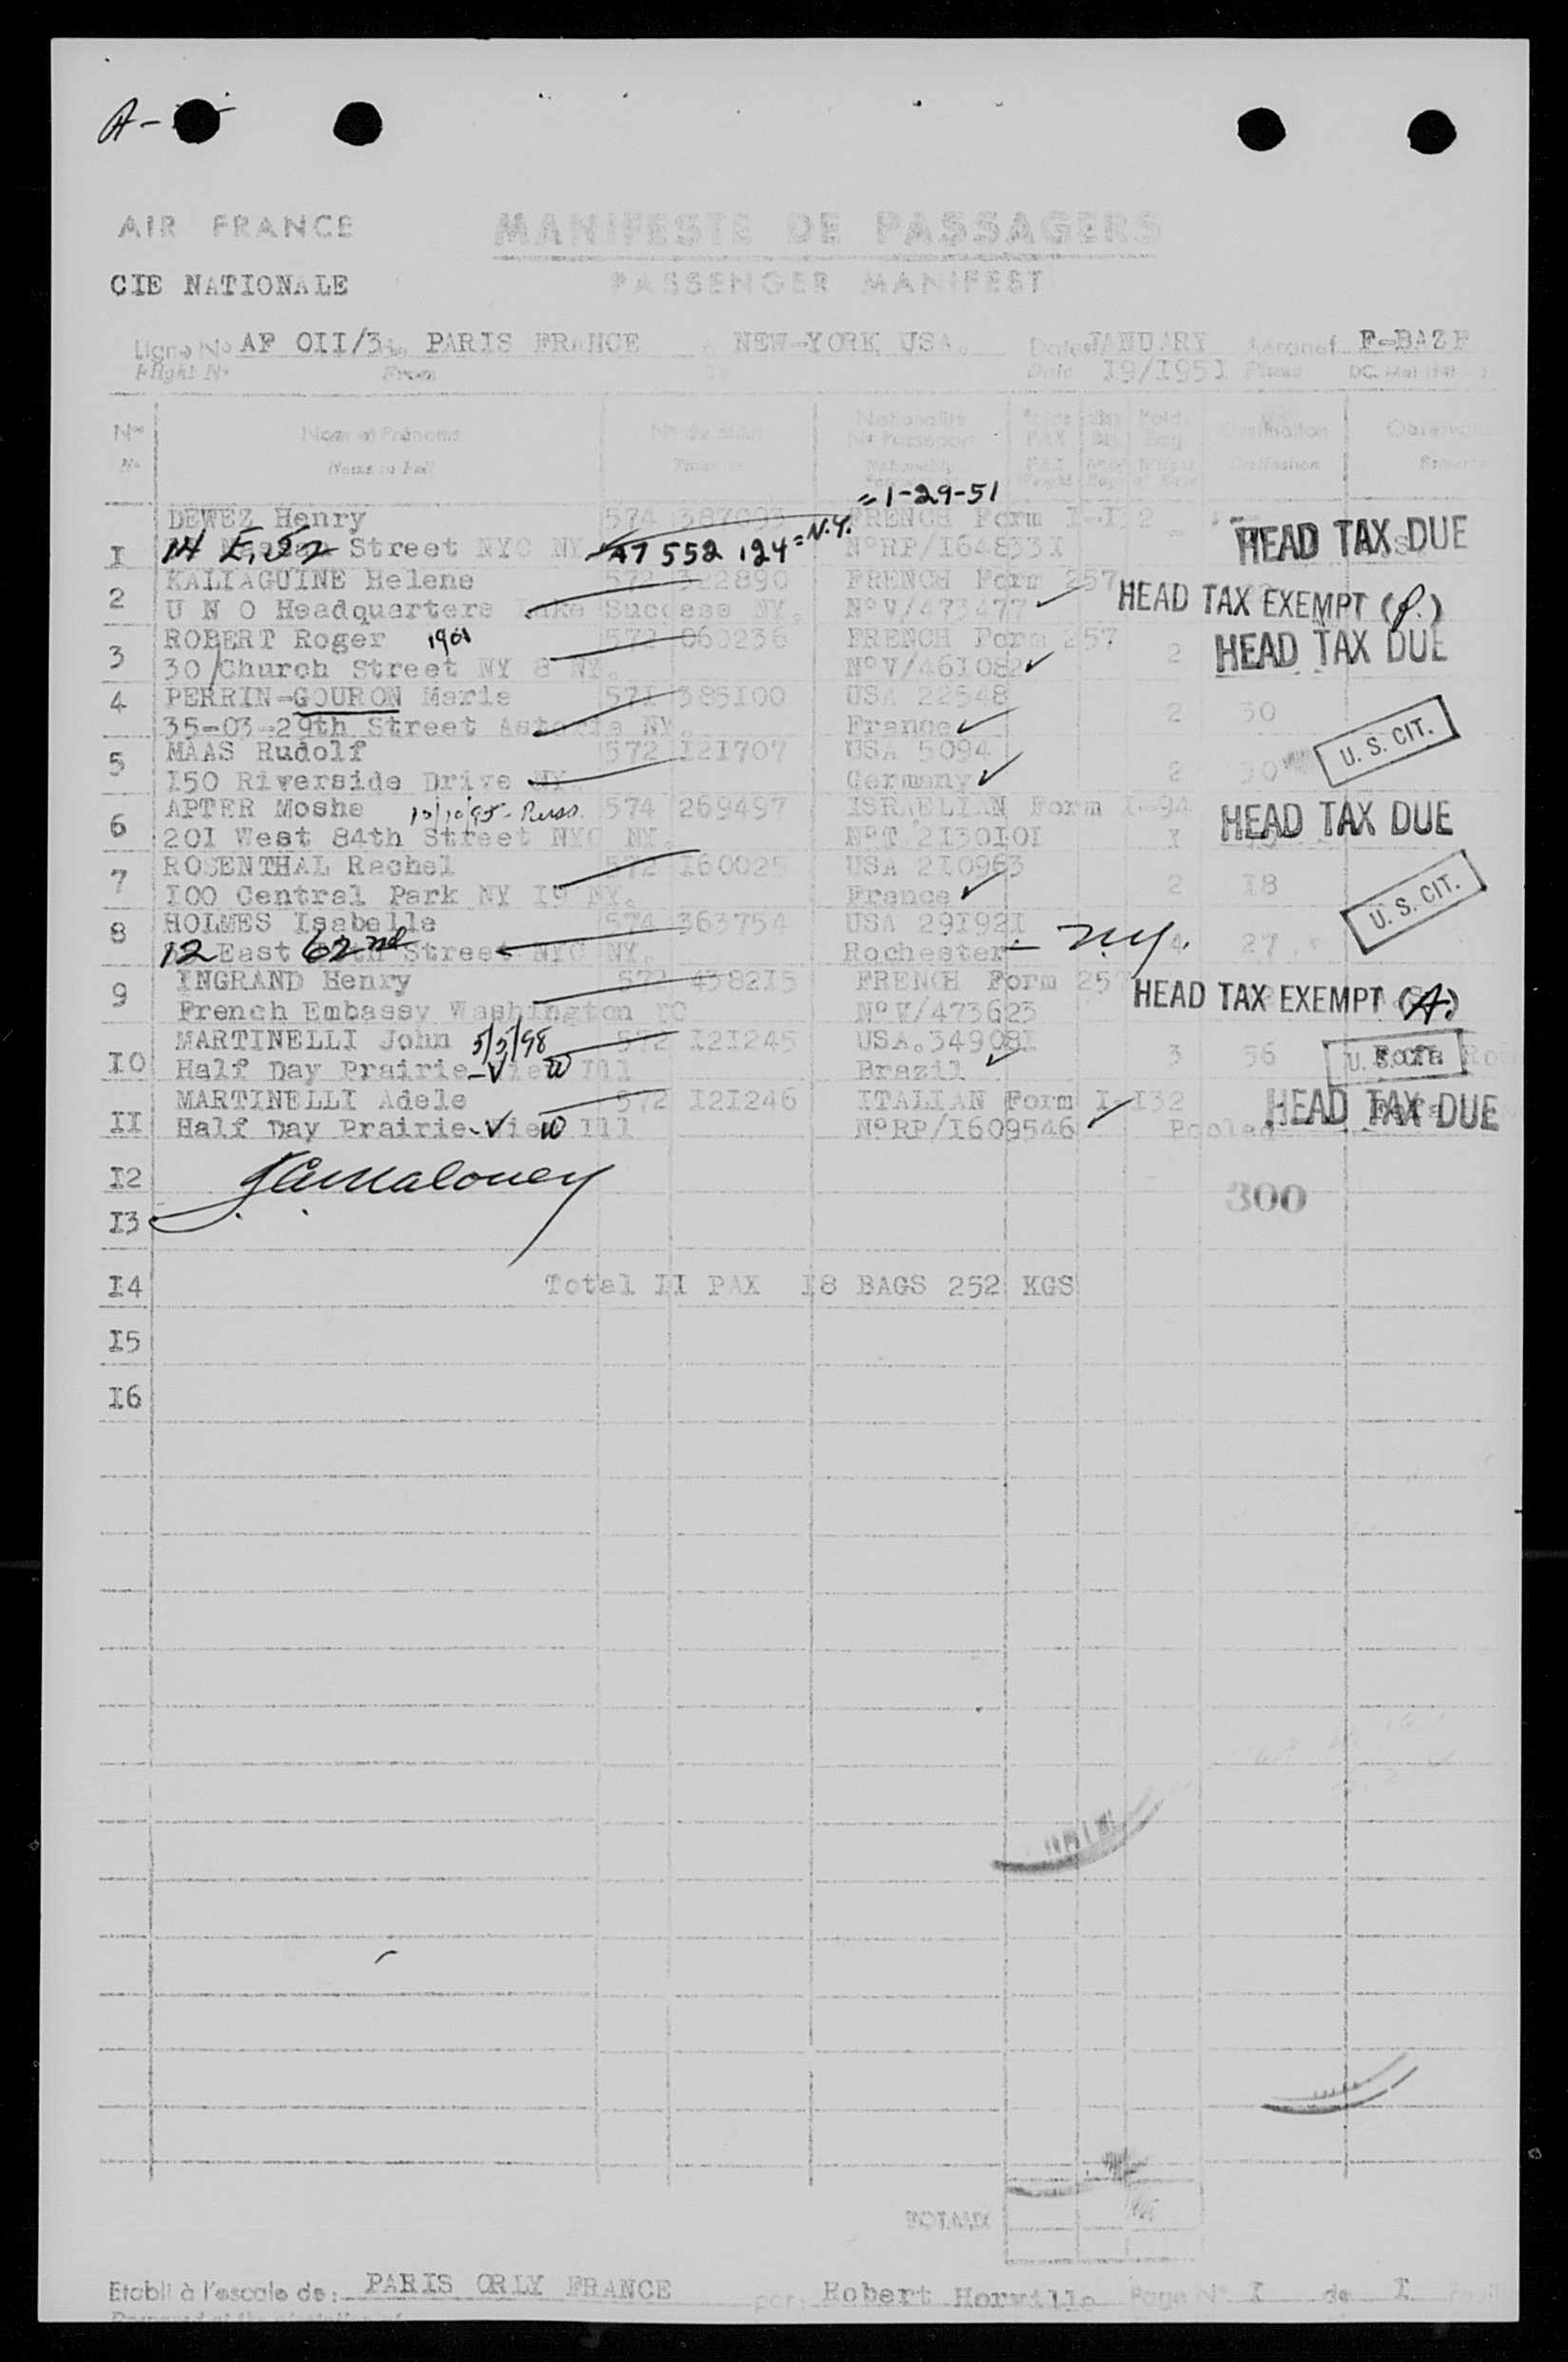 A-
AIR FRANCE MANIFESTE DE PASSAGERS
CIE NATIONALE PASSENGER MANIFEST
Ligne No AF OII/3 de PARIS FRANCE à NEW-YORK USA. Date JANUARY Aéronef F-BAZF
Flight No From To Date I9/I95I
Nos Noms et Prénoms No de Billet Nationalité Poids Poids Destination
No Name in Full No Passeport PAX Bag
Nationality Destination
= 1-29-51
DEWEZ Henry 574 387093 FRENCH Form I-I32
I 14 E, 52 Street NYC NY A7 552 124 = N.Y. NoRP/I64833I HEAD TAX DUE
KALIAGUINE Helene 572 322890 FRENCH Form 257
2 U N O Headquarters Lake Success NY. NoV/473477 HEAD TAX EXEMPT (P.)
ROBERT Roger 1901 572 060236 FRENCH Form 257
3 30 Church Street NY 8 NY. NoV/46I082 2 HEAD TAX DUE
4 PERRIN-GOURON Marie 57I 385I00 USA 22548
35-03-29th Street Astoria NY. France 2 30
MAAS Rudolf 572 I2I707 USA 5094
5 I50 Riverside Drive NY. Germany 2 30 U. S. CIT.
APTER Moshe 10/10/95- Russ. 574 269497 ISRAELIAN Form I-94
6 20I West 84th Street NYC NY. NoT 2I30I0I I HEAD TAX DUE
ROSENTHAL Rachel 572 I60025 USA 2I0963
7 I00 Central Park NY I9 NY. France 2 I8 U. S. CIT.
8 HOLMES Isabelle 574 363754 USA 29I92I
12 East 62nd Street NYC NY. Rochester - N.Y. 4 27
INGRAND Henry 572 4382I5 FRENCH Form 257
9 French Embassy Washington DC NoV/473623 HEAD TAX EXEMPT (A.)
MARTINELLI John 5/5/98 572 I2I245 USA.34908I
I0 Half Day Prairie-View Ill Brazil 3 56 U. S. CIT.
MARTINELLI Adele 572 I2I246 ITALIAN Form I-I32
II Half Day Prairie-View Ill NoRP/I609546 Pooled HEAD TAX DUE
I2 J.A. Maloney 300
I3
I4 Total II PAX I8 BAGS 252 KGS
I5
I6
TOTAUX
Etabli à l'escale de: PARIS ORLY FRANCE par: Robert Horville Page No I de I